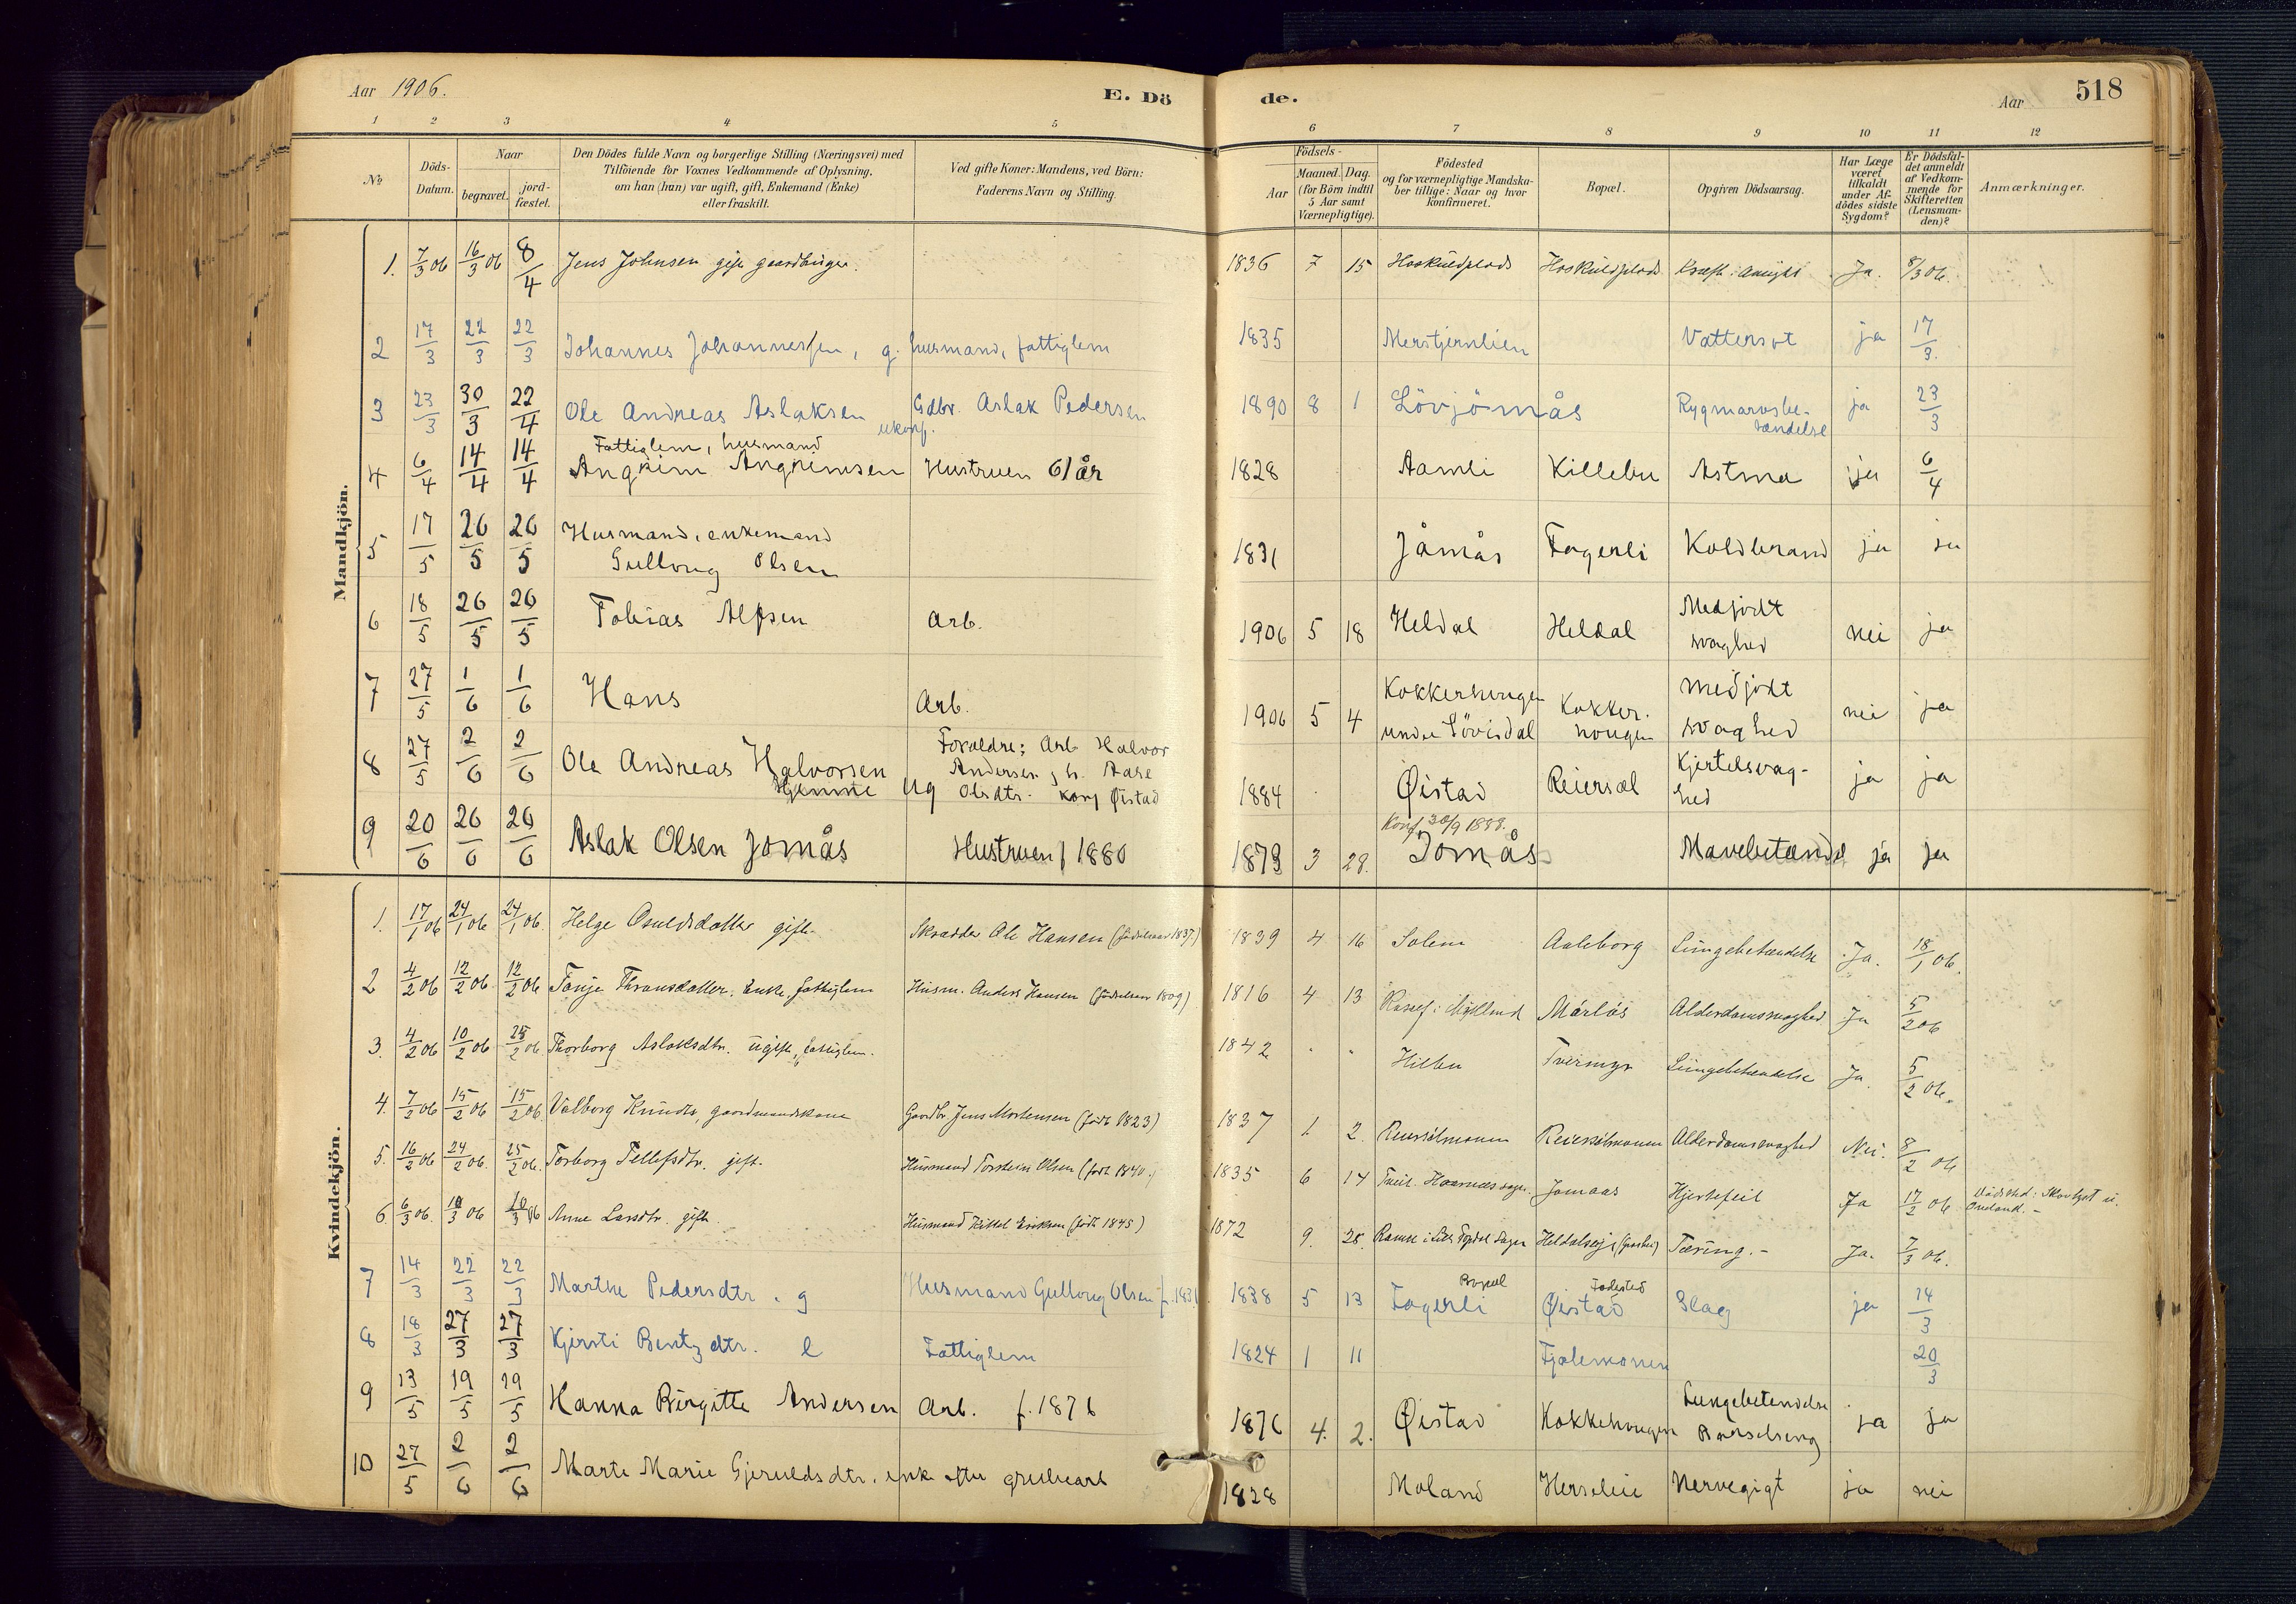 Aar 1906.
E. Dö
de.
Aar
518
1 2 3 4 5 6 7 8 9 10 11 12
№
Döds-Datum.
Naar
begravet.
jord-fæstet.
Den Dödes fulde Navn og borgerlige Stilling (Næringsvei) med
Tilföiende for Voxnes Vedkommende af Oplysning,
om han (hun) var ugift, gift, Enkemand (Enke)
eller fraskilt.
Ved gifte Koner: Mandens, ved Börn:
Faderens Navn og Stilling.
Födsels-
Aar
Maaned. Dag.
(for Börn indtil
5 Aar samt
Værnepligtige).
Födested
og for værnepligtige Mandska-
ber tillige: Naar og hvor
konfirmeret.
Bopæl.
Opgiven Dödsaarsag.
Har Læge
været
tilkaldt
under Af-
dödes sidste
Sygdom?
Er Dödsfal-
det anmeldt
af Vedkom-
mende for
Skifteretten
(Lensman-
den)?
Anmærkninger.
Mandkjön.
1. 7/3 06 16/3 06 8/4 Jens Johnsen gift gaardbruger. 1836 7 15 Ja. 8/3 06.
2 17/3 22/3 22/3 Johannes Johannessen, g. husmand, fattiglem 1835 Merstjernlien Vattersot ja 17/3.
3 23/3 30/3 22/4 Ole Andreas Aslaksen ukonf. Gdbr. Aslak Pedersen 1890 8 1 Lövjömås Rygmarvsbe-tændelse ja 23/3
4 6/4 14/4 14/4 Fattiglem, husmand
Angrim Angrimsen Hustruen 61 år 1828 Aamli Killebu Astma ja 6/4
5 17/5 26/5 26/5 Husmand, enkemand
Gullong Olsen 1831 Jåmås Fagerli Koldbrand ja ja
6 18/5 26/5 26/5 Tobias Alfsen Arb. 1906 5 18 Heldal Heldal Medfödt svaghed nei ja
7 27/5 1/6 1/6 Hans Arb. 1906 5 4 Kokkerhougen under Lövisdal Kokker-hougen medfödt svaghed nei ja
8 27/5 2/6 2/6 Ole Andreas Halvorsen Hjemme ug Forældre: Arb Halvor
Andersen, h. Aase
Olsdtr. konf Øistad 1884 Øistad Reiersøl Kjertelsvag-hed ja ja
9 20/6 26/6 26/6 Aslak Olsen Jomås Hustruen f 1880 1873 3 28. Konf. 30/9 1888.
Jomås Mavebetænd ja ja
Kvindekjön.
1. 17/1 06 24/1 06 24/1 06. Helge Osuldsdatter gift. Skrædder Ole Hansen (födselsaar 1837.) 1839 4 16 Solem Aaleborg Lungebetændelse Ja. 18/1 06.
2 4/2 06 12/2 06 12/2 06 Tonje Thronsdatter. Enke, fattiglem Husm. Anders Hansen (födselsaar 1809) 1816 4 13 Mårlös Alderdomssvaghed. Ja 5/2 06
3. 4/2 06 10/2 06 25/2 06. Thorborg Aslaksdtr. ugift, fattiglem. 1842 Hilbu Tveimyr Lungebetændelse Ja. 5/2 06.
4. 7/2 06 15/2 06 15/2 06. Valborg Knudtr, gaardmandskone Gaardbr. Jens Mortensen (födt 1823) 1837 1 2. Reiersölmonen Reiersölmonen Alderdomssvaghed Nei. 8/2 06
5. 16/2 06 24/2 06. 25/2 06. Torborg Tellefsdtr. gift. Husmand Torstein Olsen (født 1840.) 1835 6 14 Jomaas Hjertefeil Ja 17/2 06
6. 6/3 06. 10/3 06 10/3 06 Anne Larsdtr. gift. Husmand Kittel Eriksen (född 1845) 1872 9. 28. Tæring. - Ja. 7/3 06.
7 14/3 22/3 22/3 Marthe Pedersdtr. g Husmand Gullong Olsen f. 1831. 1838 5 13 Bopæl
Fagerli Födested
Øistad Slag ja 14/3
8 18/3 27/3 27/3 Kjersti Bentzdtr. e Fattiglem 1824 1 11 Fjalemonen 20/3
9 13/5 19/5 19/5 Hanna Birgitte Andersen Arb. f. 1876 1876 4. 2. Øistad Kokkehougen Lungebetendelse Barselseng ja ja
10 27/5 2/6 2/6 Marte Marie Gjeruldsdtr. enke efter grubearb 1828 Moland Herselien Nervegigt ja nei